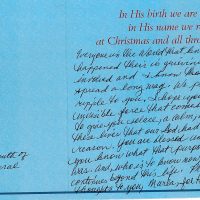 In His birth we are
in His name we r
at Christmas and all thro
Everyone in the world that kn
happened their is grievin
involved and I know tha
spread a long way. As p
ripple to you, I hope you
invisible force that comes
to give you solace, a calm,
these lives that our God had
reason. You are blessed
you know what that purpo
was. And, who is to know
continues beyond this life.
thoughts to you,
outh of
ral